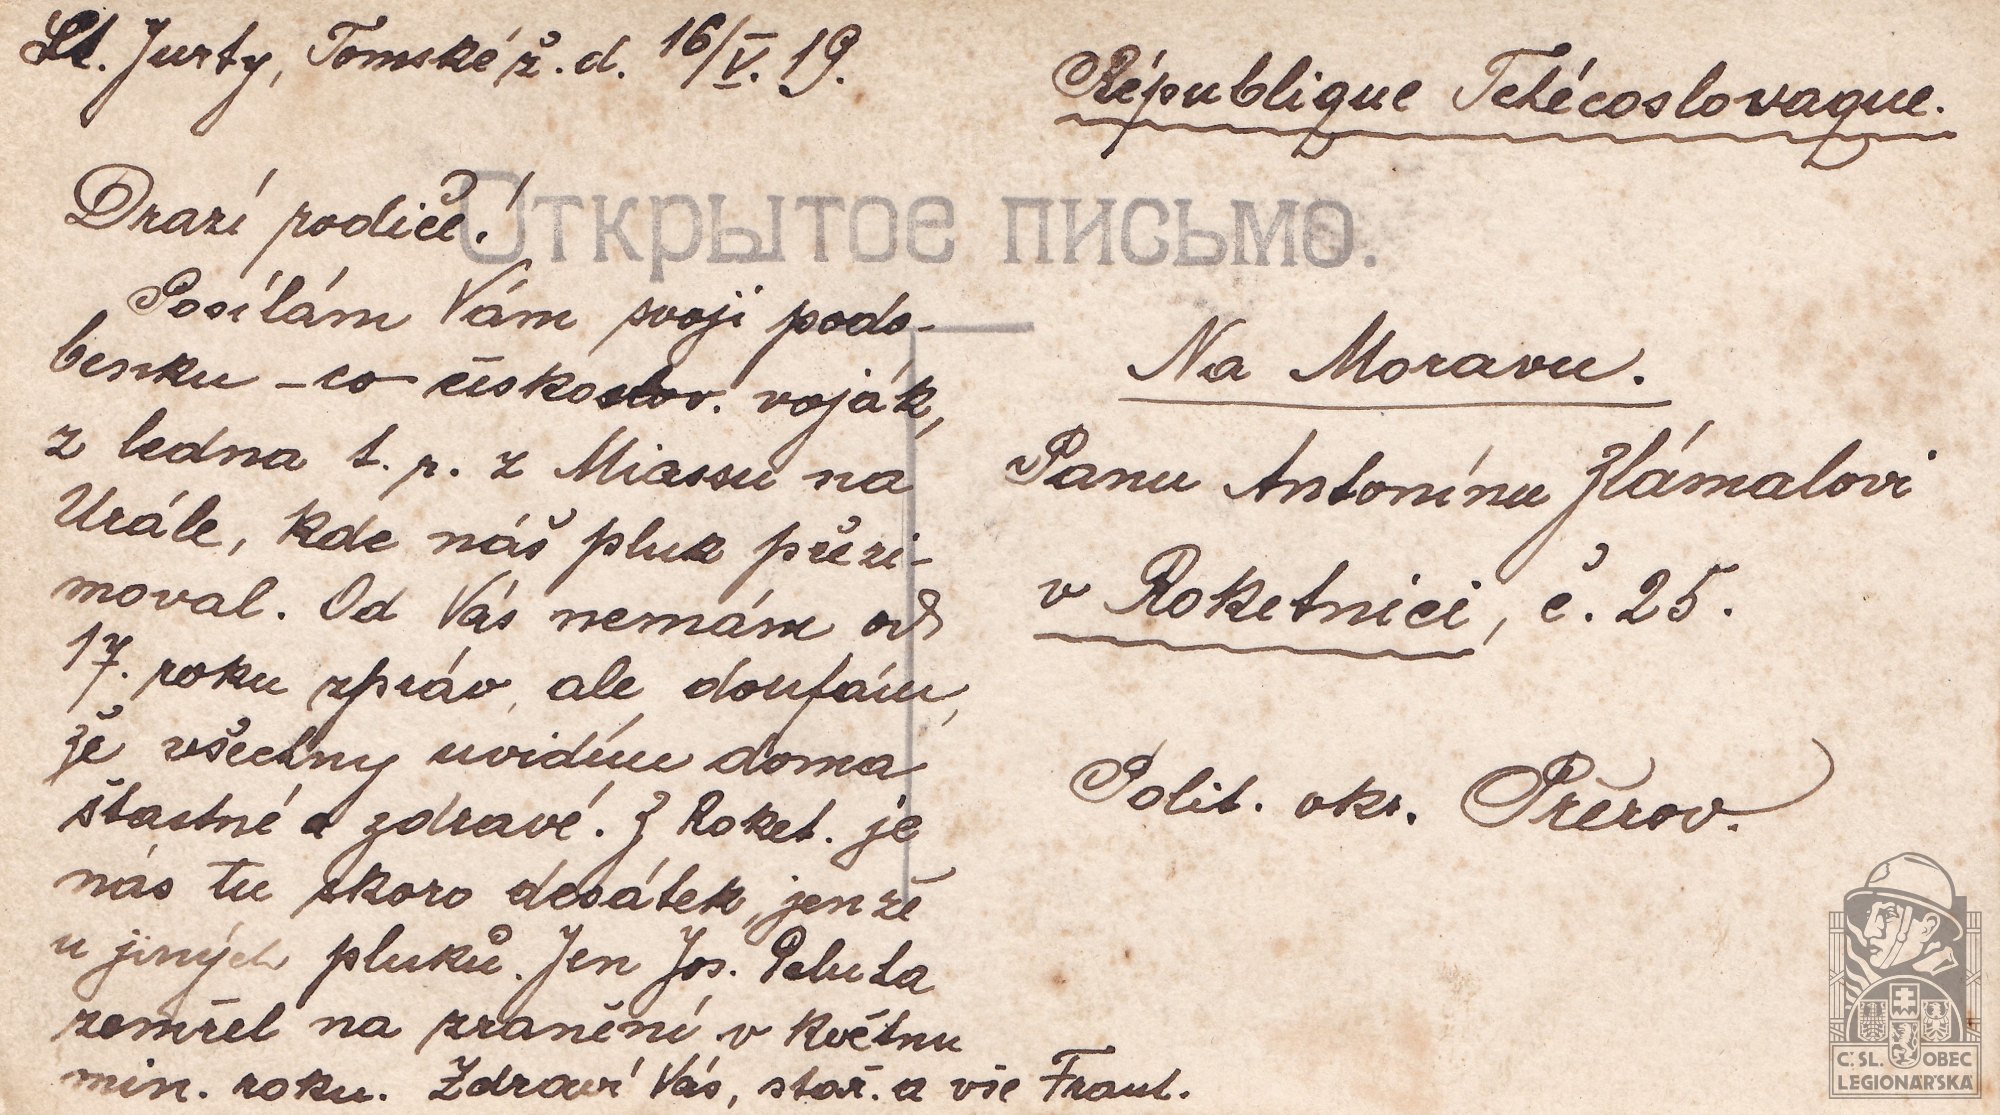 St. Jurty, Tomské ž. d. 16/V. 19.
Drazí rodiče!
Posílám Vám svoji podo-
benku – co česko slov. voják,
z ledna t. r. z Miassu na
Urále, kde náš pluk přezi-
moval. Od Vás nemám od
17. roku zpráv, ale doufám,
že všechny uvidím doma
šťastné a zdravé. Z Roket. je
nás tu skoro desátek, jenže
u jiných pluků. Jen Jos.
zemřel na zranění v květnu
min. roku. Zdraví Vás, stař. a vše Frant.
Открытое письмо.
République Tchécoslovaque.
Na Moravu.
Panu Antonínu Zlámalovi
v Roketnici, č. 25.
Polit. okr. Přerov.
Č.SL. OBEC
LEGIONÁŘSKÁ